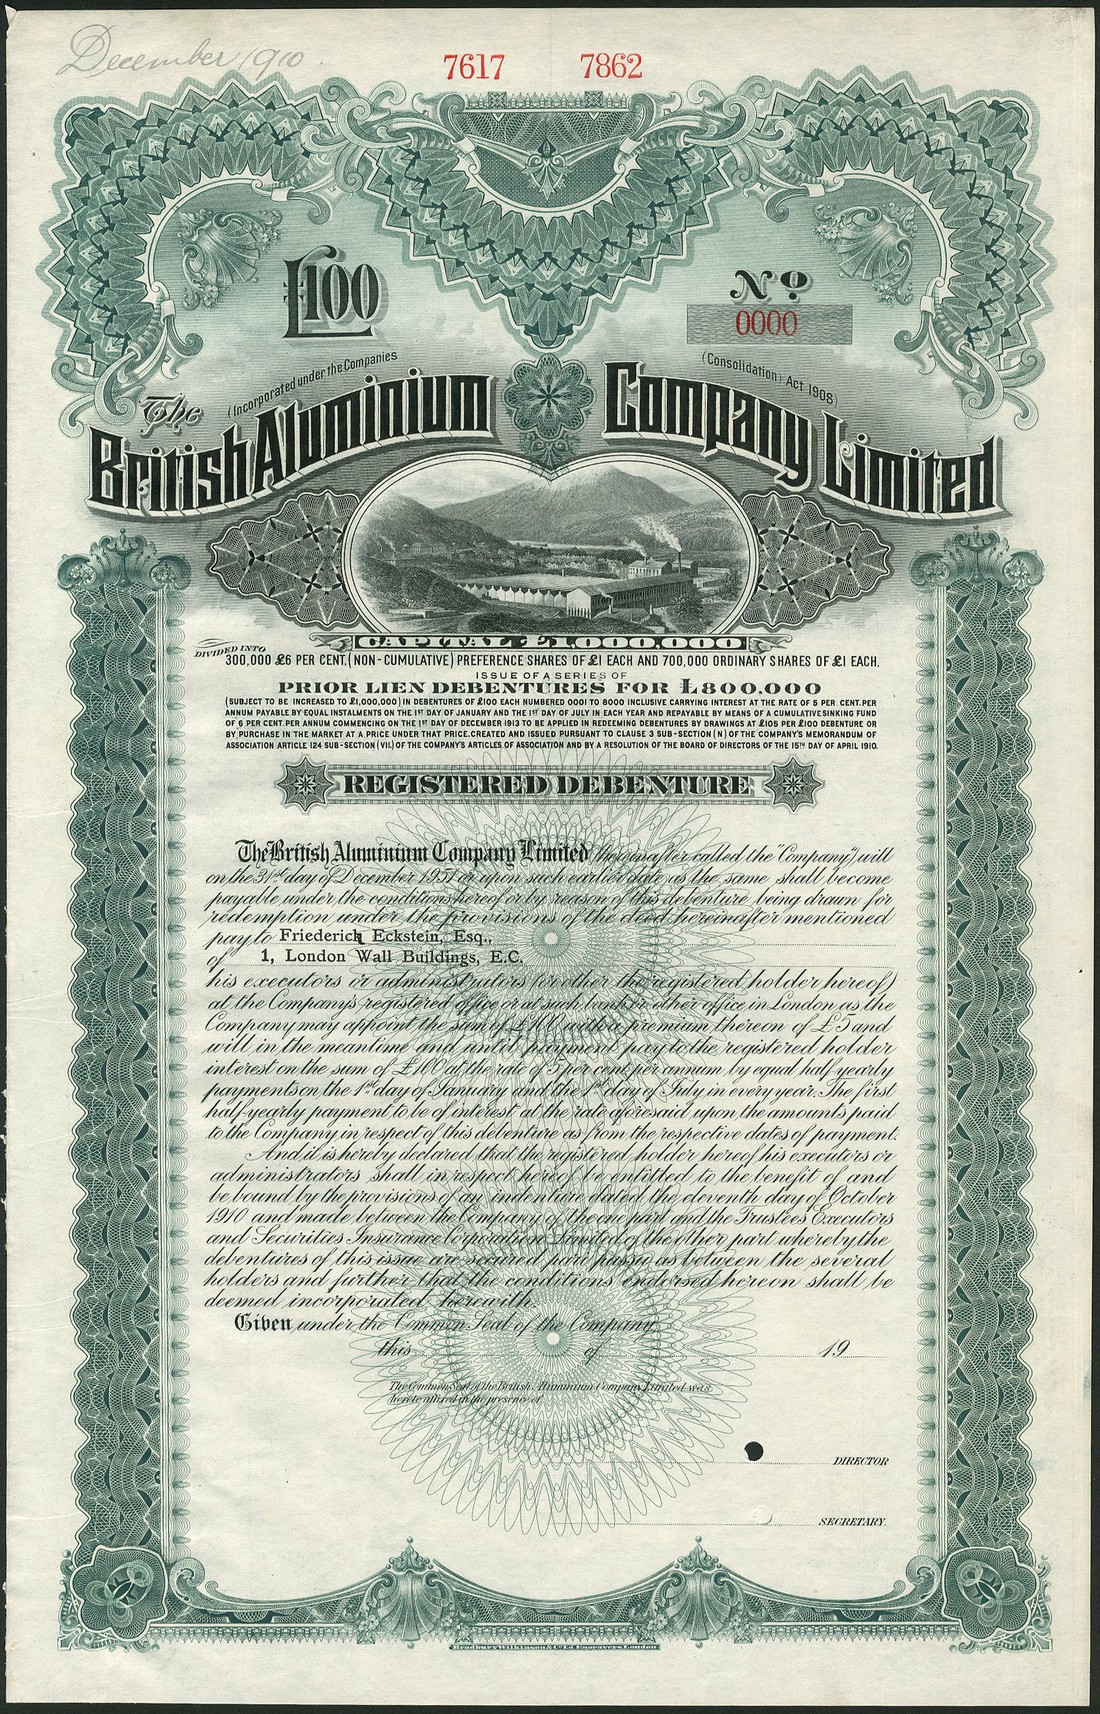 December 1910.
7617 7862
£100
No
0000
(Incorporated under the Companies (Consolidation) Act 1908)
The British Aluminium Company Limited
CAPITAL £1,000,000
DIVIDED INTO
300,000 £6 PER CENT. (NON-CUMULATIVE) PREFERENCE SHARES OF £1 EACH AND 700,000 ORDINARY SHARES OF £1 EACH.
ISSUE OF A SERIES OF
PRIOR LIEN DEBENTURES FOR £800,000
(SUBJECT TO BE INCREASED TO £1,000,000) IN DEBENTURES OF £100 EACH NUMBERED 0001 TO 8000 INCLUSIVE CARRYING INTEREST AT THE RATE OF 5 PER. CENT. PER
ANNUM PAYABLE BY EQUAL INSTALMENTS ON THE 1ST DAY OF JANUARY AND THE 1ST DAY OF JULY IN EACH YEAR AND REPAYABLE BY MEANS OF A CUMULATIVE SINKING FUND
OF 6 PER CENT. PER ANNUM COMMENCING ON THE 1ST DAY OF DECEMBER 1913 TO BE APPLIED IN REDEEMING DEBENTURES BY DRAWINGS AT £105 PER £100 DEBENTURE OR
BY PURCHASE IN THE MARKET AT A PRICE UNDER THAT PRICE. CREATED AND ISSUED PURSUANT TO CLAUSE 3 SUB-SECTION (N) OF THE COMPANY'S MEMORANDUM OF
ASSOCIATION ARTICLE 124 SUB-SECTION (VII.) OF THE COMPANY'S ARTICLES OF ASSOCIATION AND BY A RESOLUTION OF THE BOARD OF DIRECTORS OF THE 15TH DAY OF APRIL 1910.
REGISTERED DEBENTURE
The British Aluminium Company Limited (hereinafter called the "Company") will
on the 31st day of December 1951 or upon such earlier date as the same shall become
payable under the conditions hereof or by reason of this debenture being drawn for
redemption under the provisions of the deed hereinafter mentioned
pay to Friederick Eckstein, Esq.,
of 1, London Wall Buildings, E.C.
his executors or administrators (or other the registered holder hereof)
at the Company's registered office or at such bank or other office in London as the
Company may appoint the sum of £100 with a premium thereon of £5 and
will in the meantime and until payment pay to the registered holder
interest on the sum of £100 at the rate of 5 per cent per annum by equal half yearly
payments on the 1st day of January and the 1st day of July in every year. The first
half-yearly payment to be of interest at the rate aforesaid upon the amounts paid
to the Company in respect of this debenture as from the respective dates of payment.
And it is hereby declared that the registered holder hereof his executors or
administrators shall in respect hereof be entitled to the benefit of and
be bound by the provisions of an indenture dated the eleventh day of October
1910 and made between the Company of the one part and the Trustees Executors
and Securities Insurance Corporation Limited of the other part whereby the
debentures of this issue are secured pari passu as between the several
holders and further that the conditions endorsed hereon shall be
deemed incorporated herewith.
Given under the Common Seal of the Company
this of 19
The Common Seal of the British Aluminium Company Limited was
hereto affixed in the presence of
DIRECTOR
SECRETARY.
Bradbury Wilkinson & Co Ld Engravers London